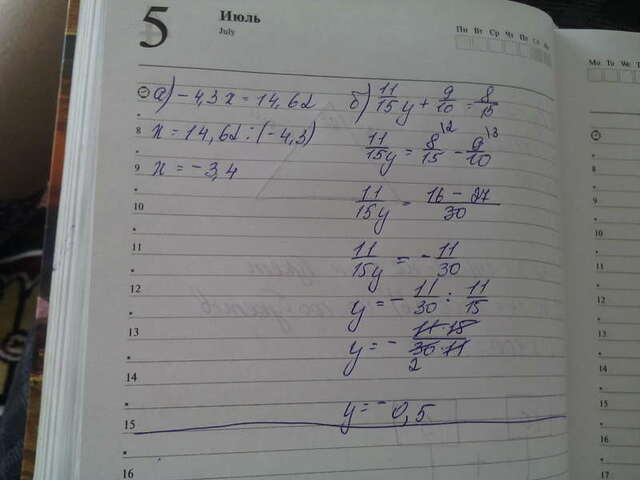 5 Июль
July
Пн Вт Ср Чт Пт Сб Вс
Mo Tu We
а) -4,3x = 14,62
8 x = 14,62 : (-4,3)
9 x = -3,4
10
11
12
13
14
15
16
б) 11/15 y + 9/10 = 8/15
11/15 y = 8/15 \2 - 9/10 \3
11/15 y = 16 - 27/30
11/15 y = - 11/30
y = - 11/30 : 11/15
y = - 11·15/30·11
2
y = - 0,5
8
9
10
11
12
13
14
15